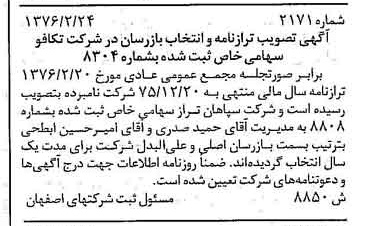 شماره ۲۱۷۱ ۱۳۷۶/۲/۲۴
آگهی تصویب ترازنامه و انتخاب بازرسان در شرکت تکافو
سهامی خاص ثبت شده بشماره ۸۳۰۴
برابر صورتجلسه مجمع عمومی عادی مورخ ۱۳۷۶/۲/۲۰
ترازنامه سال مالی منتهی به ۷۵/۱۲/۲۰ شرکت نامبرده بتصویب
رسیده است و شرکت سپاهان تراز سهامی خاص ثبت شده بشماره
۸۸۰۸ به مدیریت آقای حمید صدری و آقای امیرحسین ابطحی
بترتیب بسمت بازرسان اصلی و علی‌البدل شرکت برای مدت یک
سال انتخاب گردیده‌اند. ضمناً روزنامه اطلاعات جهت درج آگهی‌ها
و دعوتنامه‌های شرکت تعیین شده است.
ش ۸۸۵۰ مسئول ثبت شرکتهای اصفهان